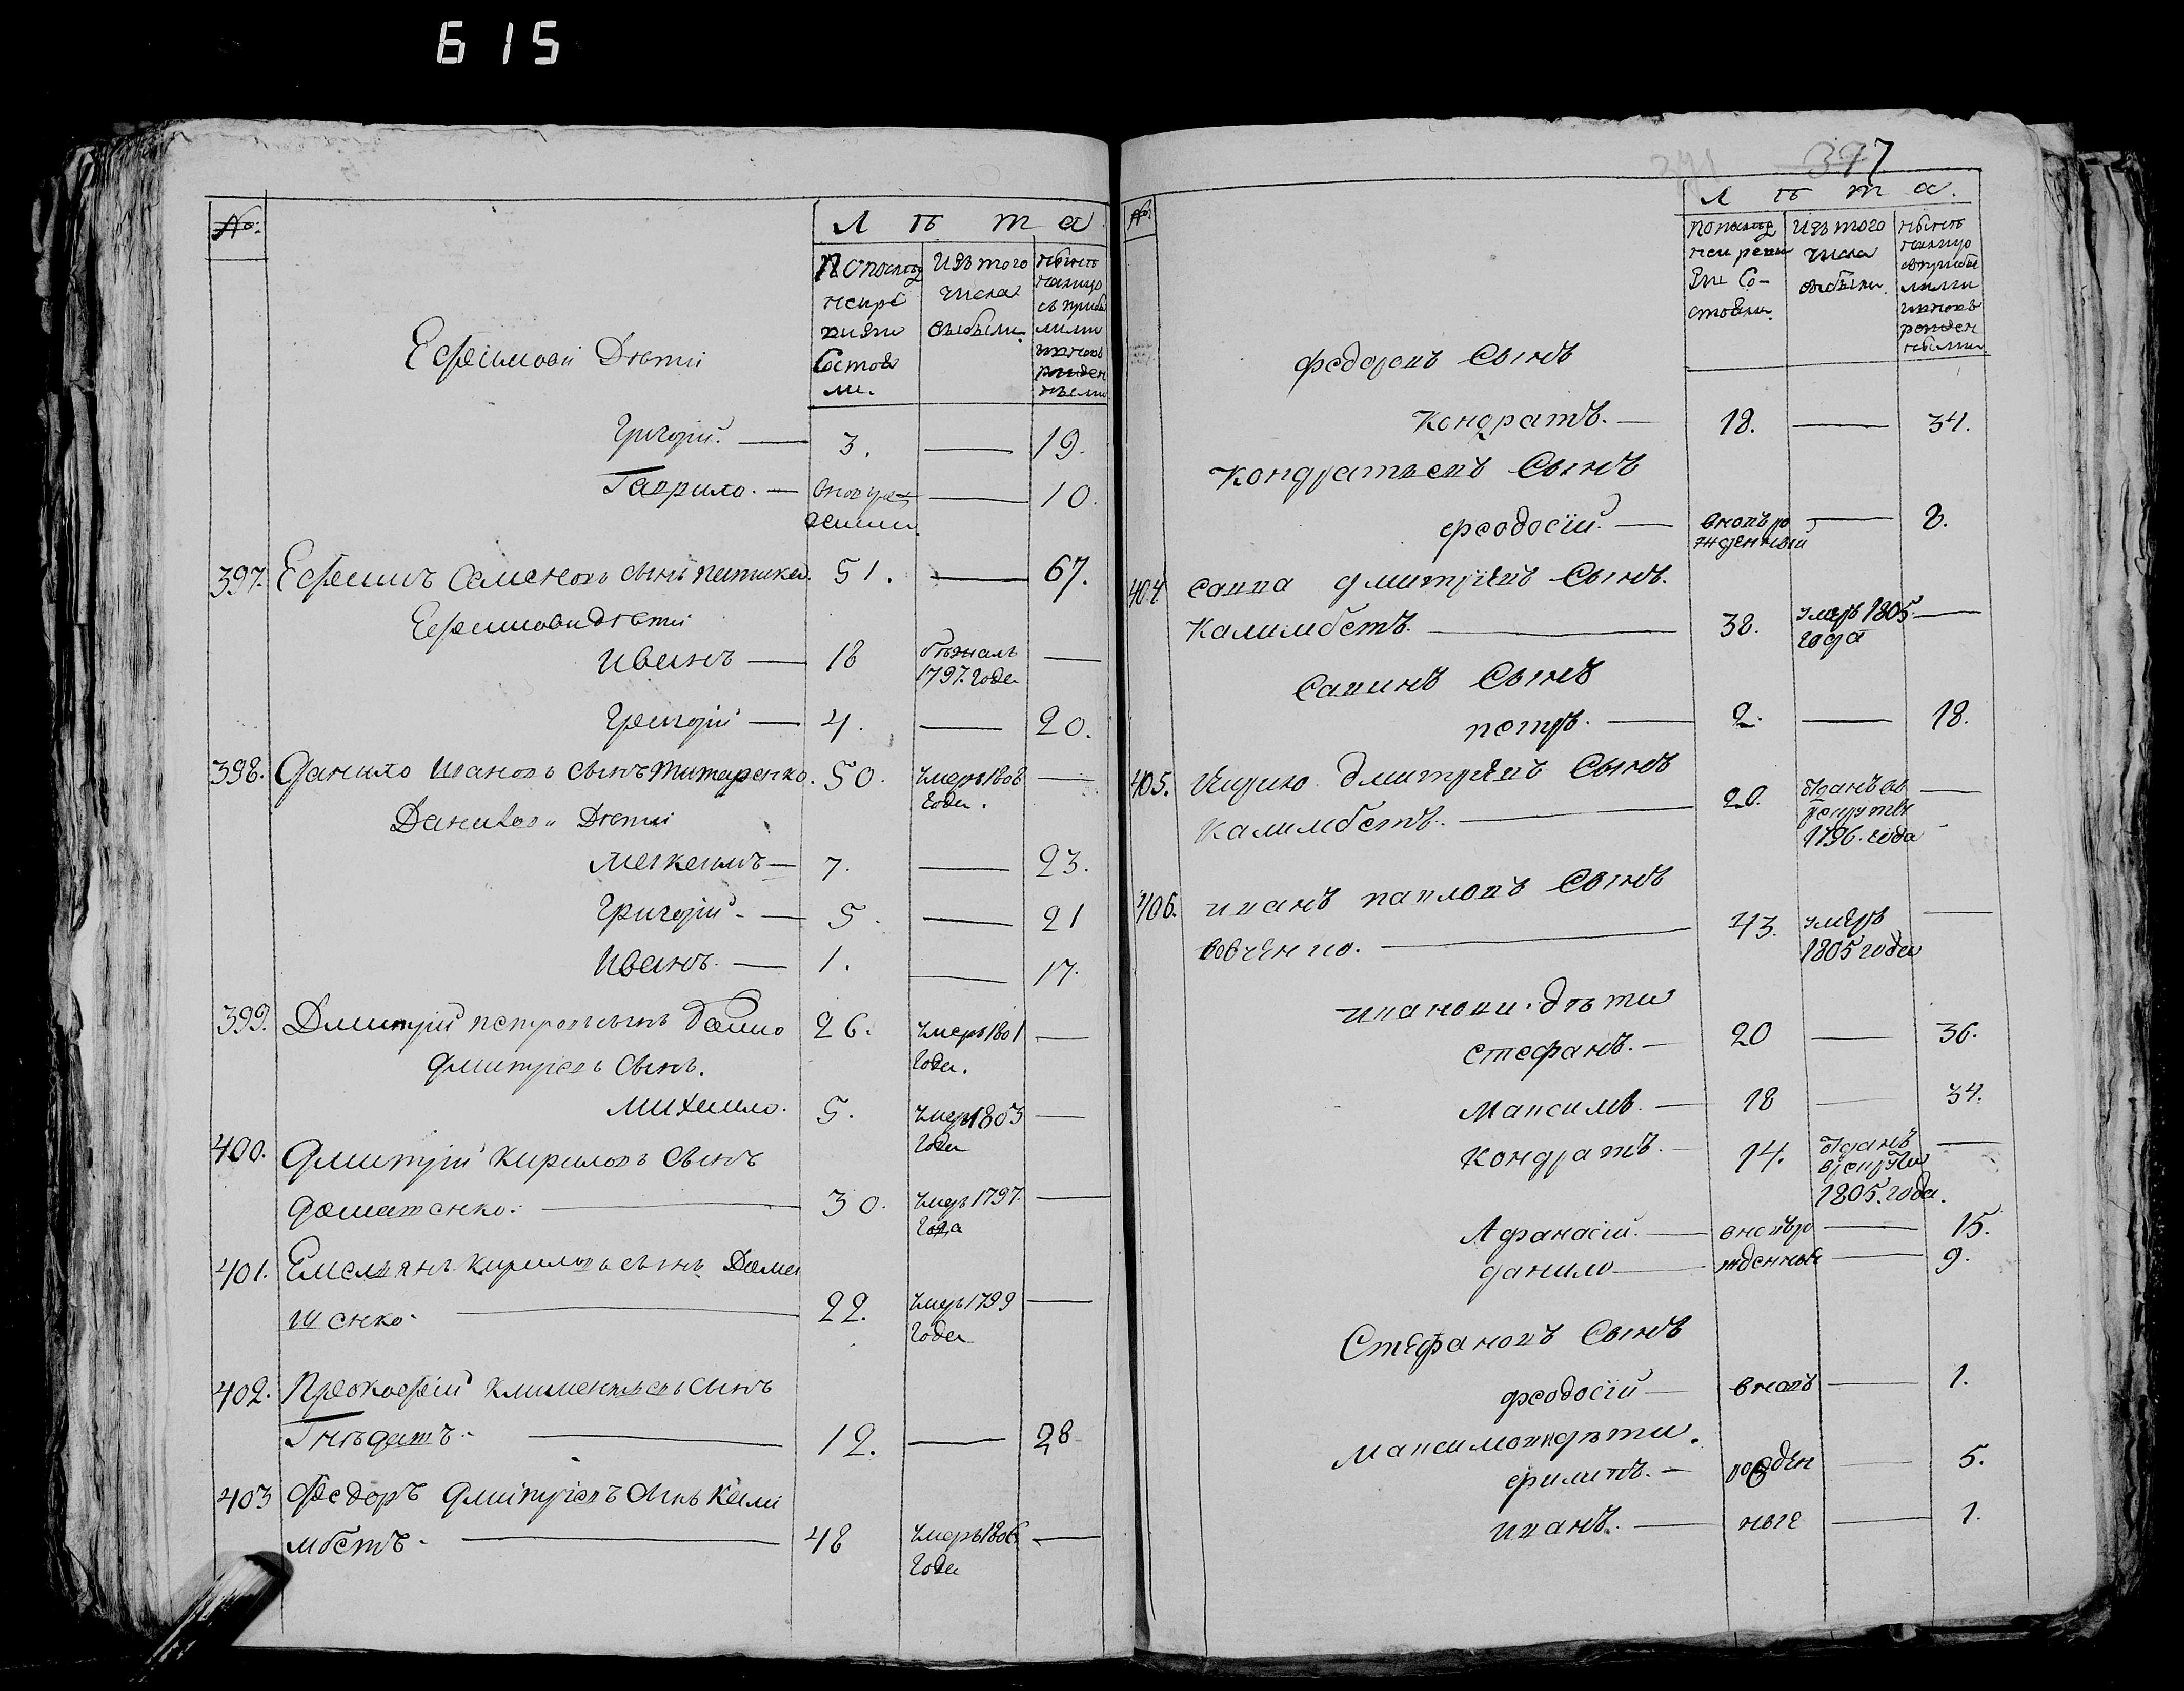 615
№:
Л ѣ т а
По послѣд
ней ре
визіи
состоя
ли.
Изъ того
числа
выбыли.
Нынѣ
налицо
съ прибы
лыми
и вновь
рожден
ными
Ефѣимови Дѣти
Григорій. — 3. — 19.
Гаврило. — вновь ро — 10.
397. Ефимъ Семеновъ сынъ 51. — 67.
Ефимови дѣти
Иванъ — 18 бѣжалъ —
1797. года
Григорій — 4. — 20.
398. Данило Ивановъ сынъ Титаренко. 50. умеръ 1808 —
года.
Данилов. Дѣти
Максимъ — 7. — 23.
Григорій — 5. — 21
Иванъ. — 1. — 17.
399. Дмитрій Петровъ сынъ 26. умеръ 1801 —
года.
Дмитріевъ сынъ.
Михаило. 5. умеръ 1803 —
года
400. Дмитрій Кириловъ сынъ
Доматенко. — 30. умеръ 1797. —
года
401. Емельянъ Кириловъ сынъ Дома
шенко. — 22. умеръ 1799 —
года
402. Прокофій Климентьевъ сынъ
Гнѣдашъ. — 12. — 28
403 Федоръ Дмитріевъ сынъ Кали
мбетъ. — 48 умеръ 1806 —
года
397
№:
Л ѣ т а.
По послѣд
ней реви
зіи со-
стояли.
Изъ того
числа
выбыли.
Нынѣ
налицо
съ прибы
лыми
и вновь
рожден
ными
Федоровъ Сынъ
Кондратъ. — 18. — 34.
Кондратьевъ Сынъ
Феодосій. — вновь ро — 8.
жденный
404 Савва Дмитріевъ Сынъ.
Калимбетъ. — 38. умеръ 1805. —
года
Савинъ Сынъ
Петръ. — 2. — 18.
405. Дмитріевъ Сынъ
Калимбетъ. — 20. отданъ въ —
рекруты
1796. года
406. Иванъ Павловъ Сынъ
Вовченко. — 43. умеръ —
1805 года
Иванови. дѣти
Стефанъ. — 20 — 36.
Максимъ. — 18 — 34.
Кондратъ. — 14. отданъ —
в рекруты
1805. года.
Афанасій. — вновь ро — 15.
Данило — жденные — 9.
Стефановъ Сынъ
Феодосій — вновь — 1.
Максимови дѣти.
Филипъ. — рожден — 5.
Иванъ. — ные — 1.